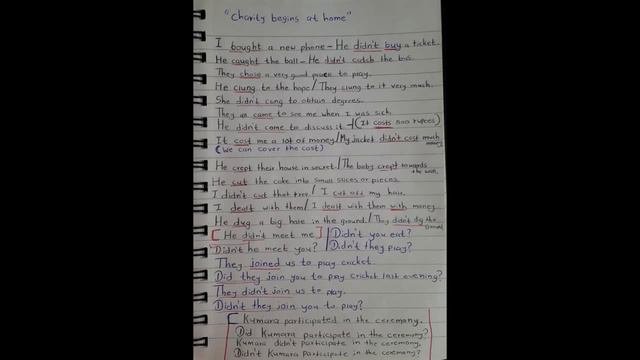 "Charity begins at home"
I bought a new phone - He didn't buy a ticket.
He caught the ball - He didn't catch the bus.
They chose a very good place to play.
He clung to the hope / They clung to it very much.
She didn't cling to obtain degrees.
They came to see me when I was sick.
He didn't come to discuss it → (It costs 500 rupees)
It cost me a lot of money / My jacket didn't cost much money
(We can cover the cost)
He crept their house in secret. / The baby crept towards the
He cut the cake into small slices or pieces.
I didn't cut that tree / I cut off my hair.
I dealt with them / I dealt with them with money
He dug a big hole in the ground. / They didn't dig the
[He didn't meet me] Didn't you eat?
Didn't he meet you? Didn't they play?
They joined us to play cricket.
Did they join you to play cricket last evening?
They didn't join us to play.
Didn't they join you to play?
Kumara participated in the ceremony.
Did Kumara participate in the ceremony?
Kumara didn't participate in the ceremony.
Didn't Kumara participate in the ceremony?